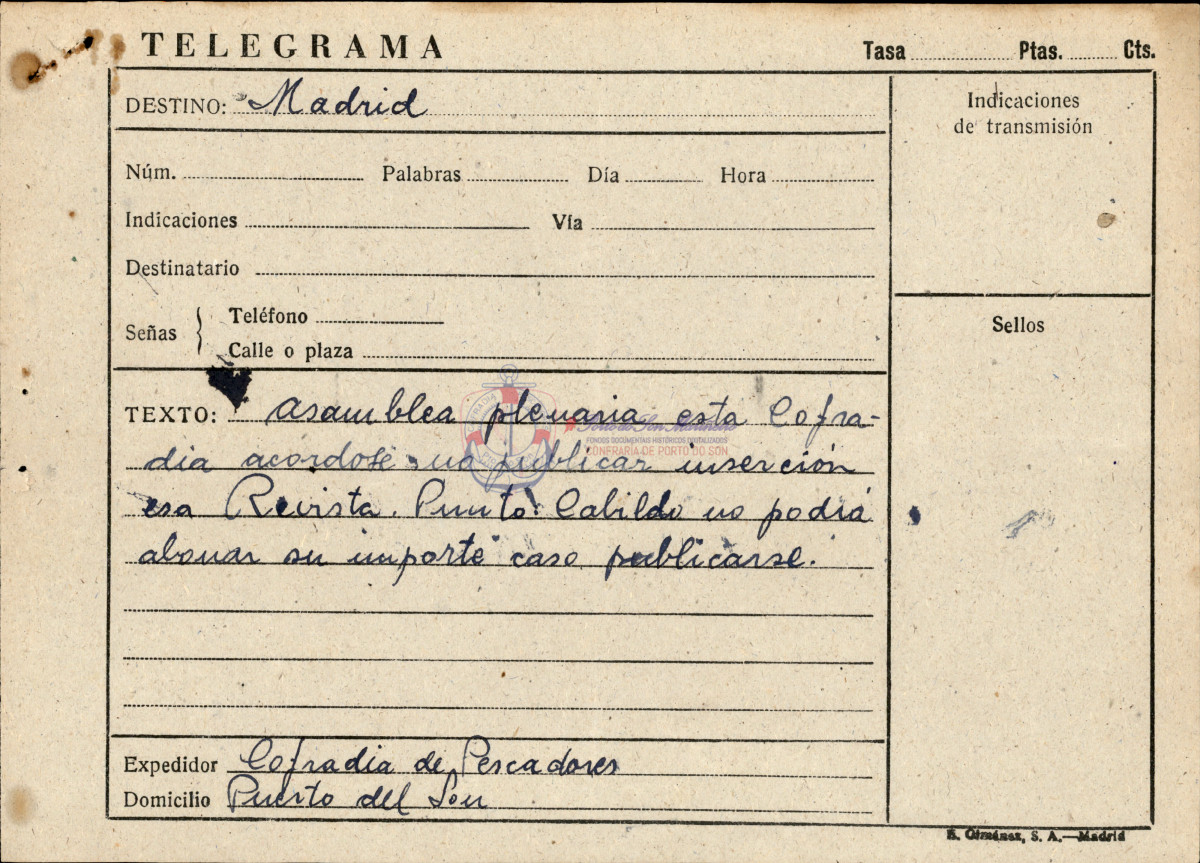 TELEGRAMA
Tasa Ptas. Cts.
DESTINO: Madrid
Indicaciones
de transmisión
Núm. Palabras Día Hora
Indicaciones Vía
Destinatario
Señas { Teléfono
Calle o plaza
Sellos
TEXTO: Asamblea plenaria esta Cofra-
dia acordose no publicar inserción
esa Revista. Punto. Cabildo no podia
abonar su importe caso publicarse.
FONDOS DOCUMENTAIS HISTÓRICOS DIXITALIZADOS
CONFRARIA DE PORTO DO SON
Expedidor Cofradia de Pescadores
Domicilio Puerto del Son
E. Giménez, S. A.—Madrid